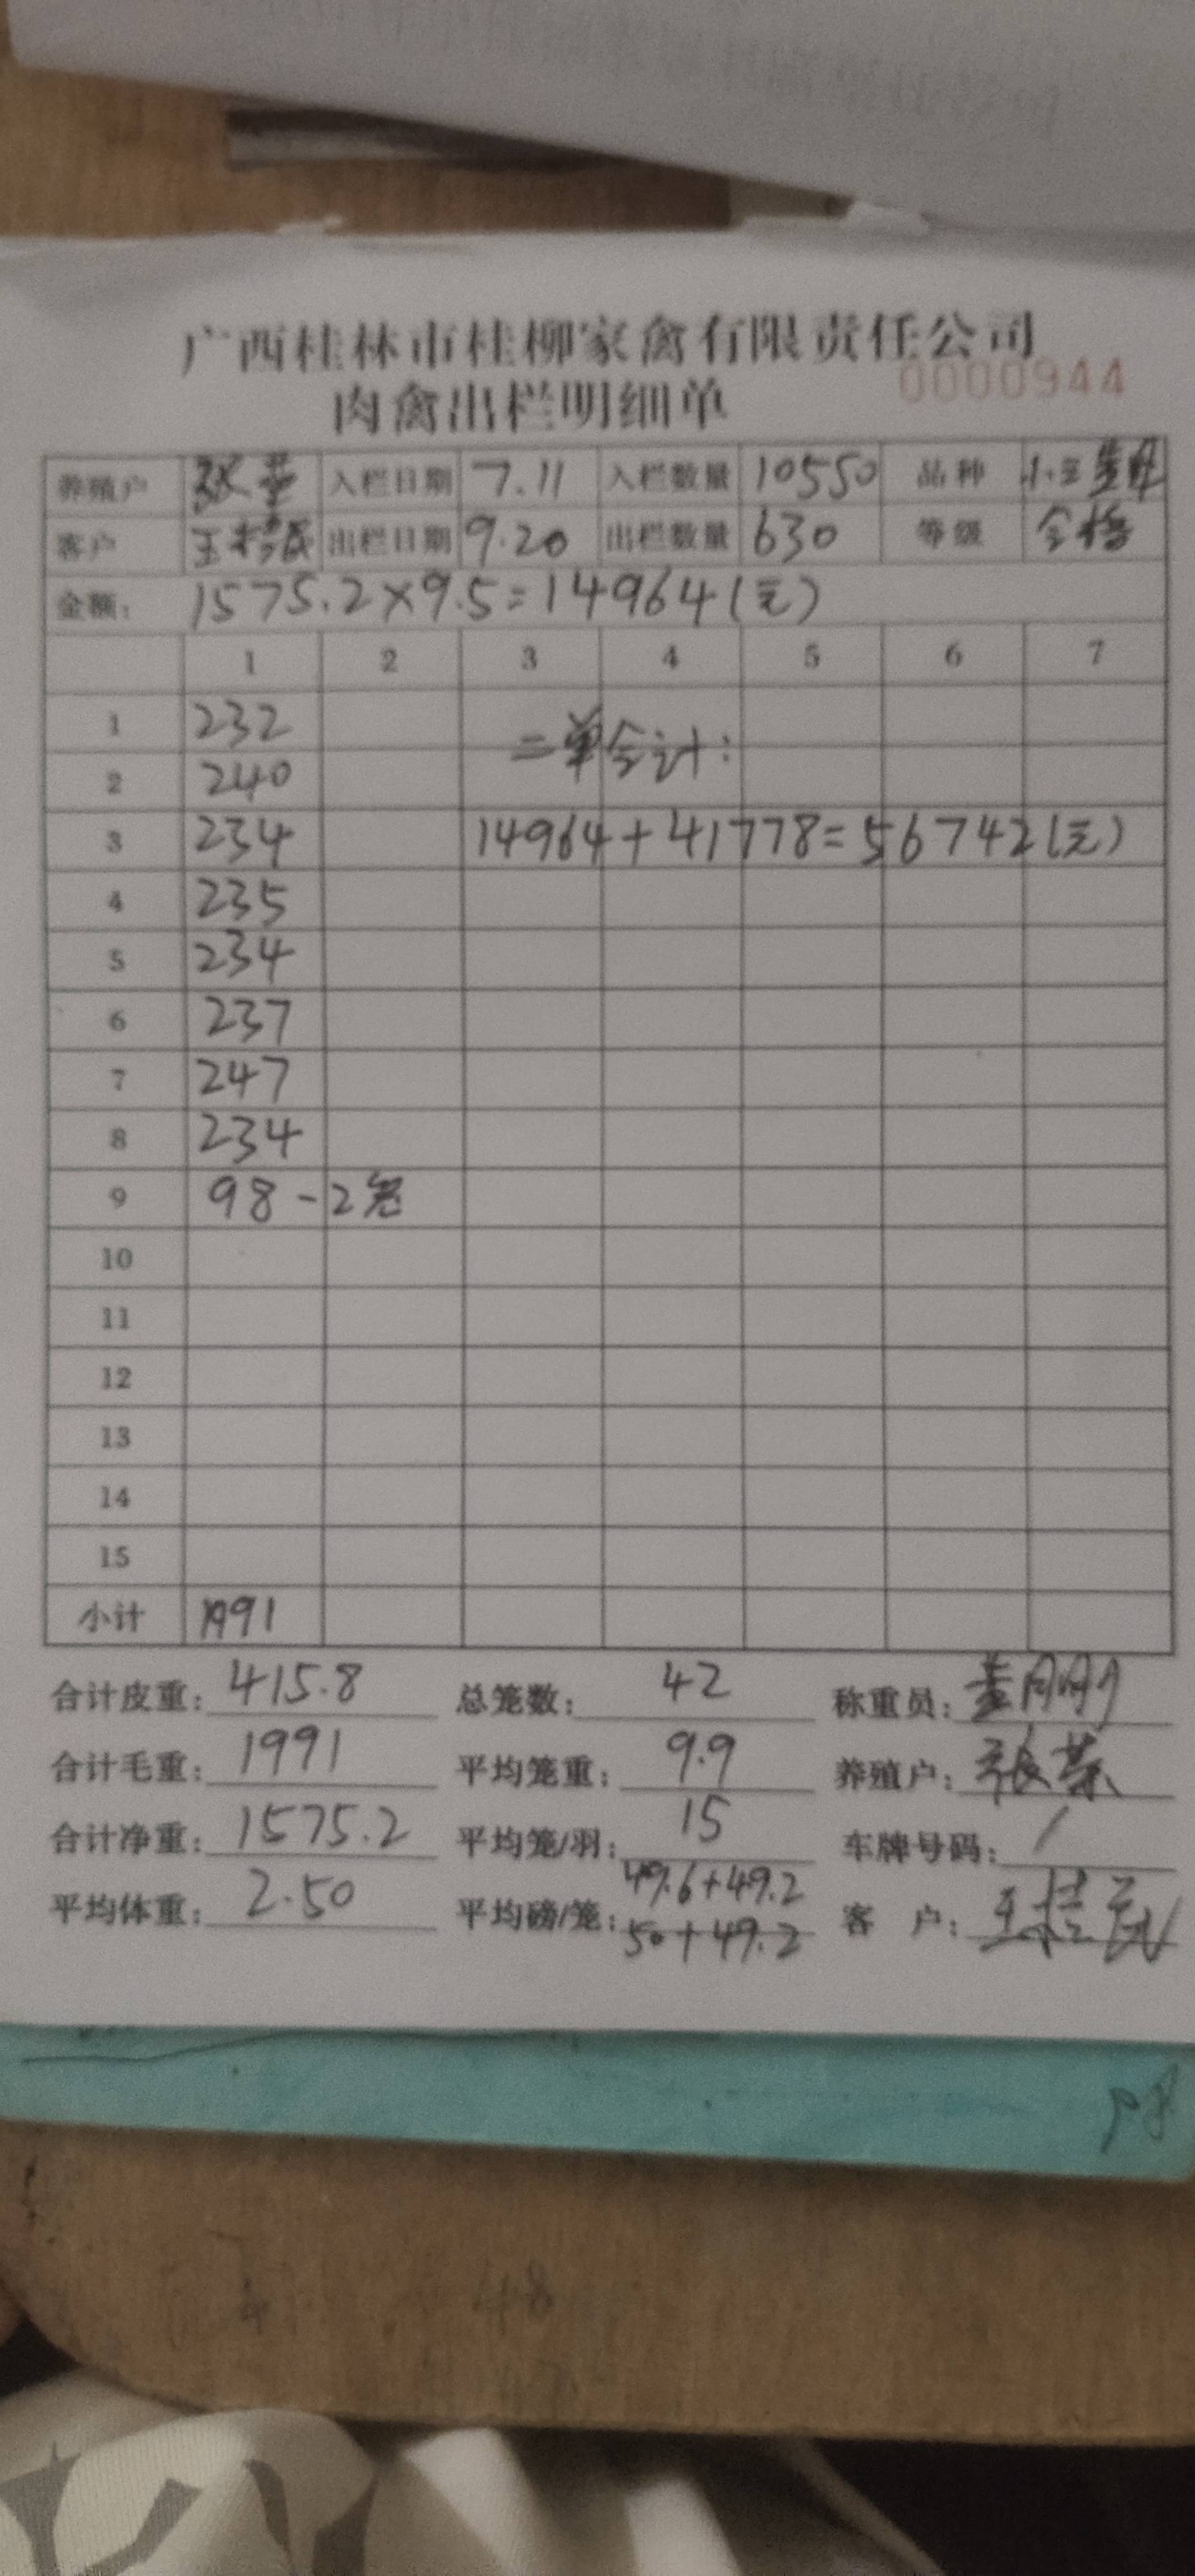 广西桂林市桂柳家禽有限责任公司
肉禽出栏明细单
0000944
养殖户 张 入栏日期 7.11 入栏数量 10550 品种
客户 王 出栏日期 9.20 出栏数量 630 等级 合格
金额: 1575.2×9.5=14964(元)
1 2 3 4 5 6 7
1 232
二单合计:
2 240
3 234 14964+41778=56742(元)
4 235
5 234
6 237
7 247
8 234
9 98-2笼
10
11
12
13
14
15
小计 1991
合计皮重: 415.8 总笼数: 42 称重员:
合计毛重: 1991 平均笼重: 9.9 养殖户: 张荣
合计净重: 1575.2 平均笼/羽: 15 车牌号码: /
平均体重: 2.50 平均磅/笼: 49.6+49.2 客 户: 王
50+49.2